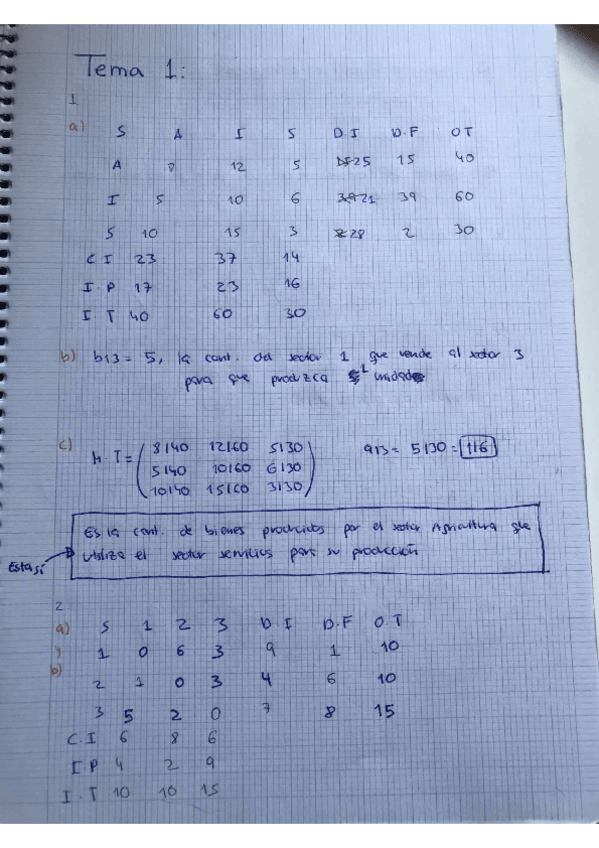 Tema 1:
1
a) S A I S D.I D.F OT
A 8 12 5 25 15 40
I 5 10 6 21 39 60
S 10 15 3 28 2 30
C I 23 37 14
I.P 17 23 16
I T 40 60 30
b) b13 = 5, la cant. del sector 1 que vende al sector 3
para que produzca 1 unidades
c) M.T = ( 8/40 12/60 5/30
5/40 10/60 6/30
10/40 15/60 3/30 ) a13 = 5/30 = 1/6
Es la cant. de bienes producidos por el sector Agricultura que
Esta sí utiliza el sector servicios para su producción
2
a) S 1 2 3 D.I D.F O.T
y 1 0 6 3 9 1 10
b)
2 1 0 3 4 6 10
3 5 2 0 7 8 15
C.I 6 8 6
I P 4 2 9
I.T 10 10 15